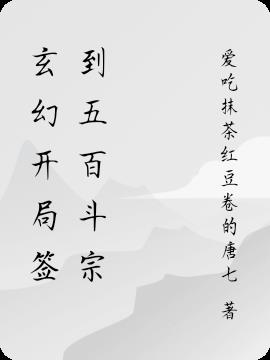 玄幻开局签
到五百斗宗
爱吃抹茶红豆卷的唐七 著